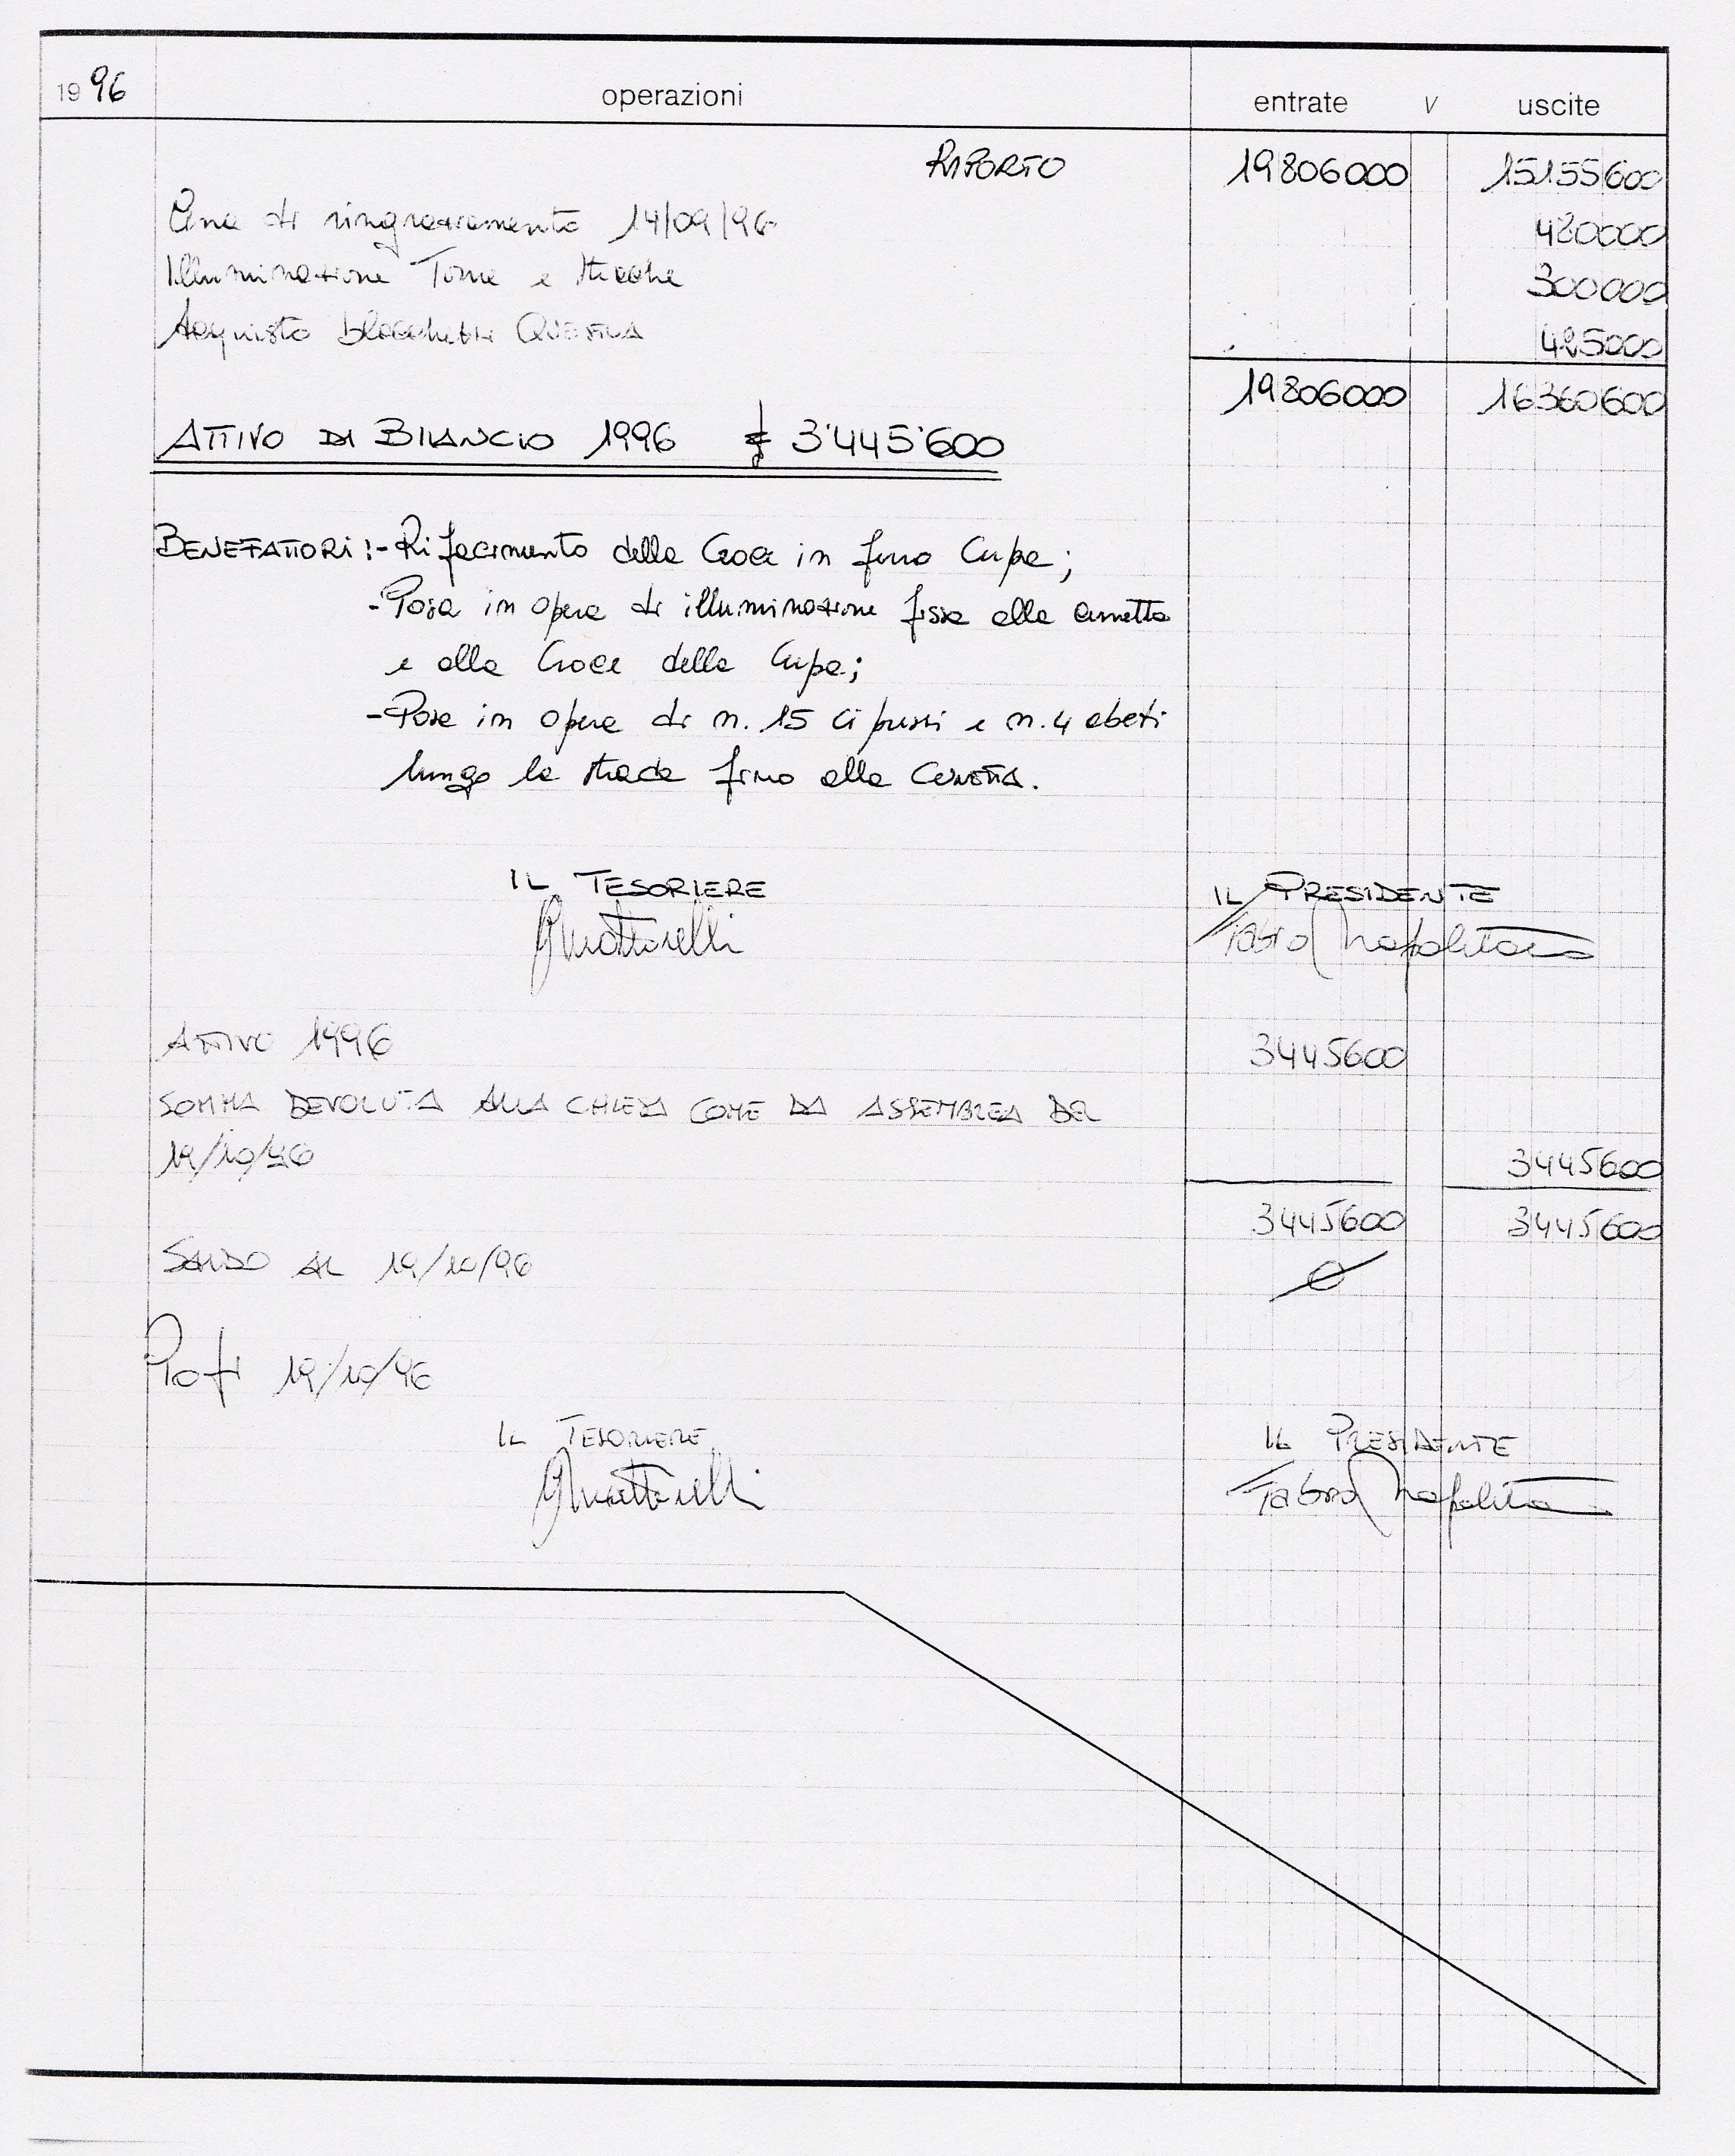 1996 operazioni entrate V uscite
RIPORTO 19806000 15155600
Cena di ringraziamento 14/09/96 480000
Illuminazione Torre e 300000
Acquisto blocchetti QUESTUA 425000
19806000 16360600
ATTIVO DI BILANCIO 1996 £ 3'445'600
BENEFATTORI:- Rifacimento della Croce in ferro Cupa;
- Posa in opera di illuminazione fissa alla conetta
e alla Croce della Cupa;
- Posa in opera di n. 15 cipressi e n. 4 abeti
lungo la strada fino alla CONETTA.
IL TESORIERE IL PRESIDENTE
Fabio Napolitano
ATTIVO 1996 3445600
SOMMA DEVOLUTA ALLA CHIESA COME DA ASSEMBLEA DEL
19/10/96 3445600
3445600 3445600
SALDO AL 19/10/96 0
19/10/96
IL TESORIERE IL PRESIDENTE
Fabio Napolitano